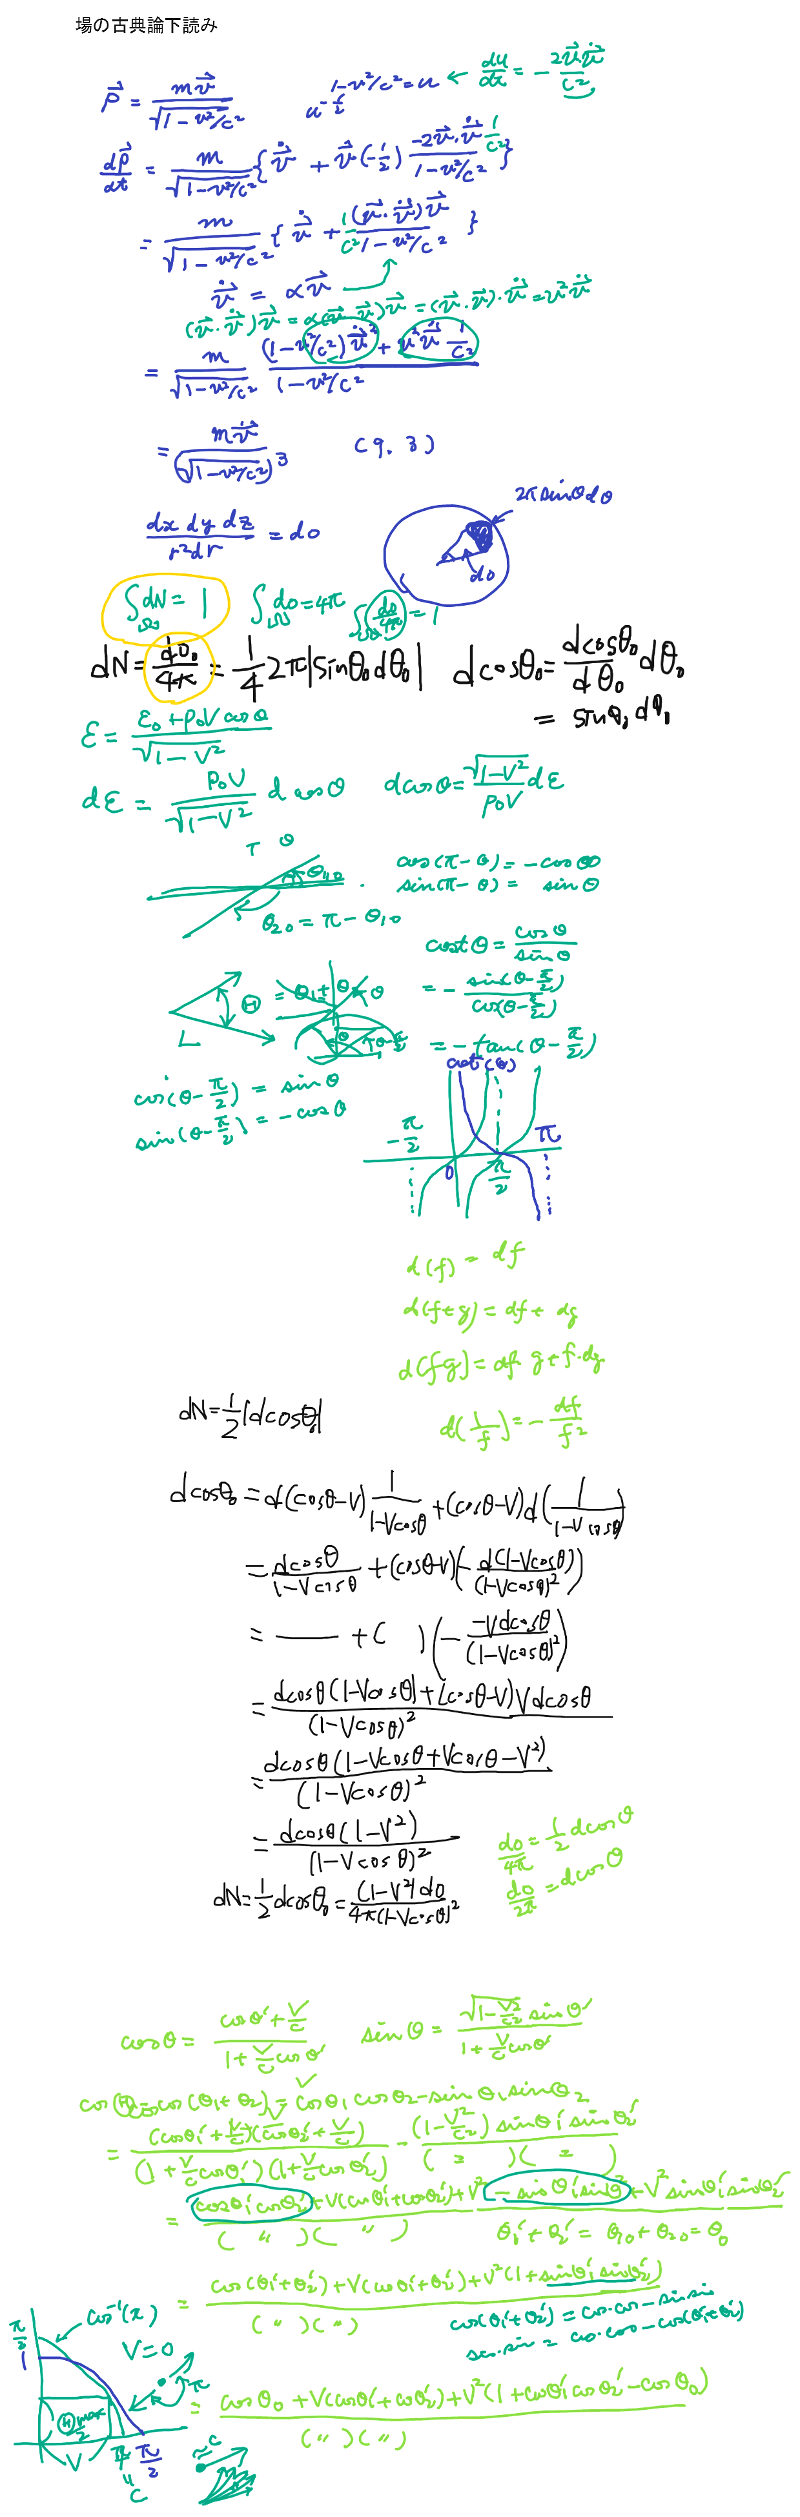 場の古典論下読み
1-v²/c²=u ← du/dt = - 2v⃗·v⃗̇/c²
p⃗ = mv⃗/√(1-v²/c²)
dp⃗/dt = m/√(1-v²/c²) { v⃗̇ + v⃗(-1/2) (-2v⃗·v⃗̇ 1/c²)/(1-v²/c²) }
= m/√(1-v²/c²) { v⃗̇ + 1/c² (v⃗·v⃗̇)v⃗/(1-v²/c²) }
v⃗̇ = αv⃗
(v⃗·v⃗̇)v⃗ = α(v⃗·v⃗)v⃗ = (v⃗·v⃗)·v⃗̇ = v²v⃗̇
= mv⃗̇/(√(1-v²/c²))³ (9.3)
2π sinθdθ
dx dy dz/r²dr = do
do
∫dN = 1 ∫do = 4π ∫do/4π = 1
dN = do₀/4π = 1/4 2π|sinθ₀dθ₀| dcosθ₀ = dcosθ₀/dθ₀ dθ₀
= sinθ₀dθ₀
ε = (ε₀+p₀V cosθ)/√(1-V²)
dε = p₀V/√(1-V²) d cosθ dcosθ = √(1-V²)/p₀V dε
θ₁₀
cos(π-θ) = -cosθ
sin(π-θ) = sinθ
θ₂₀ = π-θ₁₀
cotθ = cosθ/sinθ
= - sin(θ-π/2)/cos(θ-π/2)
= -tan(θ-π/2)
cos(θ-π/2) = sinθ
sin(θ-π/2) = -cosθ
cot(θ)
-π/2 0 π/2 π
d(f) = df
d(f+g) = df+dg
d(fg) = df g+f·dg
dN = 1/2|dcosθ₀|
d(1/f) = - df/f²
dcosθ₀ = d(cosθ-V) 1/(1-Vcosθ) + (cosθ-V)d(1/(1-Vcosθ))
= dcosθ/(1-Vcosθ) + (cosθ-V)(- d(1-Vcosθ)/(1-Vcosθ)²)
= — + ( )(- -Vdcosθ/(1-Vcosθ)²)
= dcosθ(1-Vcosθ)+(cosθ-V)Vdcosθ/(1-Vcosθ)²
= dcosθ(1-Vcosθ+Vcosθ-V²)/(1-Vcosθ)²
= dcosθ(1-V²)/(1-Vcosθ)²
do/4π = 1/2 dcosθ
do/2π = dcosθ
dN = 1/2 dcosθ₀ = (1-V²)do/4π(1-Vcosθ)²
cosθ = (cosθ'+V/c)/(1+V/c cosθ') sinθ = √(1-V²/c²) sinθ'/(1+V/c cosθ')
cosΘ = cos(θ₁+θ₂) = cosθ₁cosθ₂-sinθ₁sinθ₂
= (cosθ₁'+V/c)(cosθ₂'+V/c)/(1+V/c cosθ₁')(1+V/c cosθ₂') - (1-V²/c²) sinθ₁' sinθ₂'/( = )( = )
= cosθ₁'cosθ₂'+V(cosθ₁'+cosθ₂')+V²-sinθ₁'sinθ₂'+V²sinθ₁'sinθ₂'/( 〃 )( 〃 )
θ₁'+θ₂' = θ₁₀+θ₂₀ = θ₀
= cos(θ₁'+θ₂')+V(cosθ₁'+cosθ₂')+V²(1+sinθ₁'sinθ₂')/( 〃 )( 〃 )
cos(θ₁'+θ₂') = cos·cos-sin·sin
sin·sin = cos·cos-cos(θ₁'+θ₂')
cos⁻¹(x)
V=0
= cosθ₀+V(cosθ₁'+cosθ₂')+V²(1+cosθ₁'cosθ₂'-cosθ₀)/( 〃 )( 〃 )